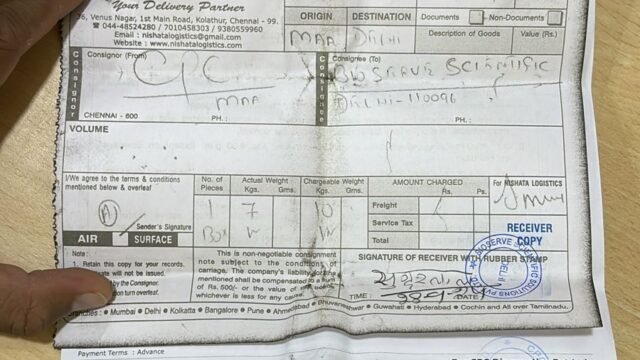 Your Delivery Partner
76, Venus Nagar, 1st Main Road, Kolathur, Chennai - 99.
044-48524280 / 7010458303 / 9380559960
Email : nishatalogistics@gmail.com
Website : www.nishatalogistics.com
ORIGIN DESTINATION Documents Non-Documents
MAA DELHI Description of Goods Value (Rs.)
Consignor (From) Consignee (To)
Consignor CPC Consignee SCIENTIFIC
MAA DELHI-110096
CHENNAI - 600 PH. : PH. :
VOLUME
I/We agree to the terms & conditions mentioned below & overleaf
Sender's Signature
No. of Pieces Actual Weight Kgs. Grns. Chargeable Weight Kgs. Grns. AMOUNT CHARGED Rs. Ps. For NISHATA LOGISTICS
1 7 10 Freight
Box Service Tax
Total
RECEIVER COPY
AIR SURFACE
Note :
1. Retain this copy for your records.
will not be issued.
by the Consignor
turn overleaf.
This is non-negotiable consignment
note subject to the conditions of
carriage. The company's liability for the
mentioned shall be compensated to a sum
of Rs.500/- or the value of
whichever is less for any cause.
SIGNATURE OF RECEIVER WITH RUBBER STAMP
TIME : DATE
Branches : Mumbai / Delhi / Kolkatta / Bangalore / Pune / Ahmedabad / Bhuvaneshwar / Guwahati / Hyderabad / Cochin and All over Tamilnadu.
Payment Terms : Advance